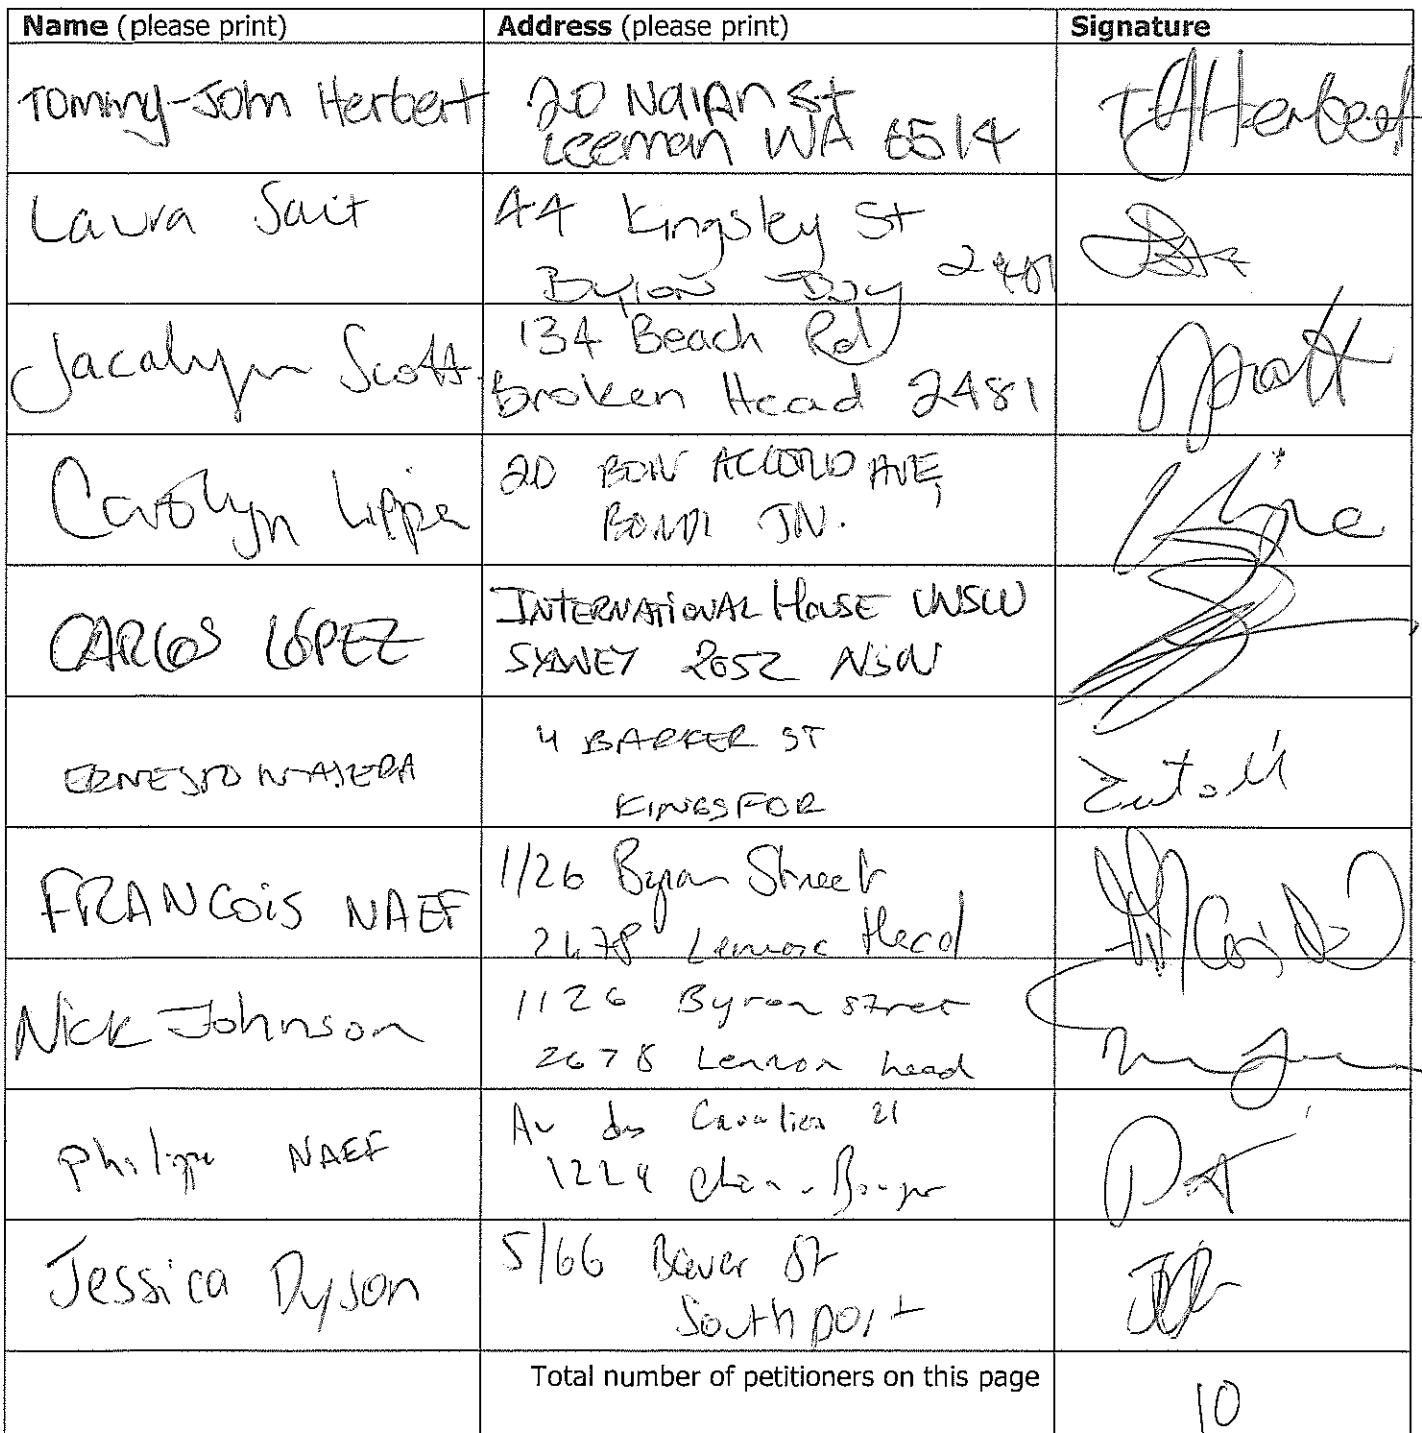 Name (please print) Address (please print) Signature
Tommy-John Herbert 20 Nairn St
Leeman WA 6514
TJHerbert
Laura Sait 44 Kingsley St
Byron Bay 2481
Jacalyn Scott. 134 Beach Rd
broken Head 2481
Carolyn Lippa 20 BON ACCORD AVE,
BONDI JN.
CARLOS LÓPEZ INTERNATIONAL HOUSE UNSW
SYDNEY 2052 NSW
ERNESTO MASERA 4 BARKER ST
KINGSFOR
FRANCOIS NAEF 1/26 Byron Street
2478 Lennox Head
Nick Johnson 1126 Byron street
2678 Lennox head
Philippe NAEF Av des Cavaliers 21
1224
Jessica Dyson 5/66 St
Southport
Total number of petitioners on this page 10